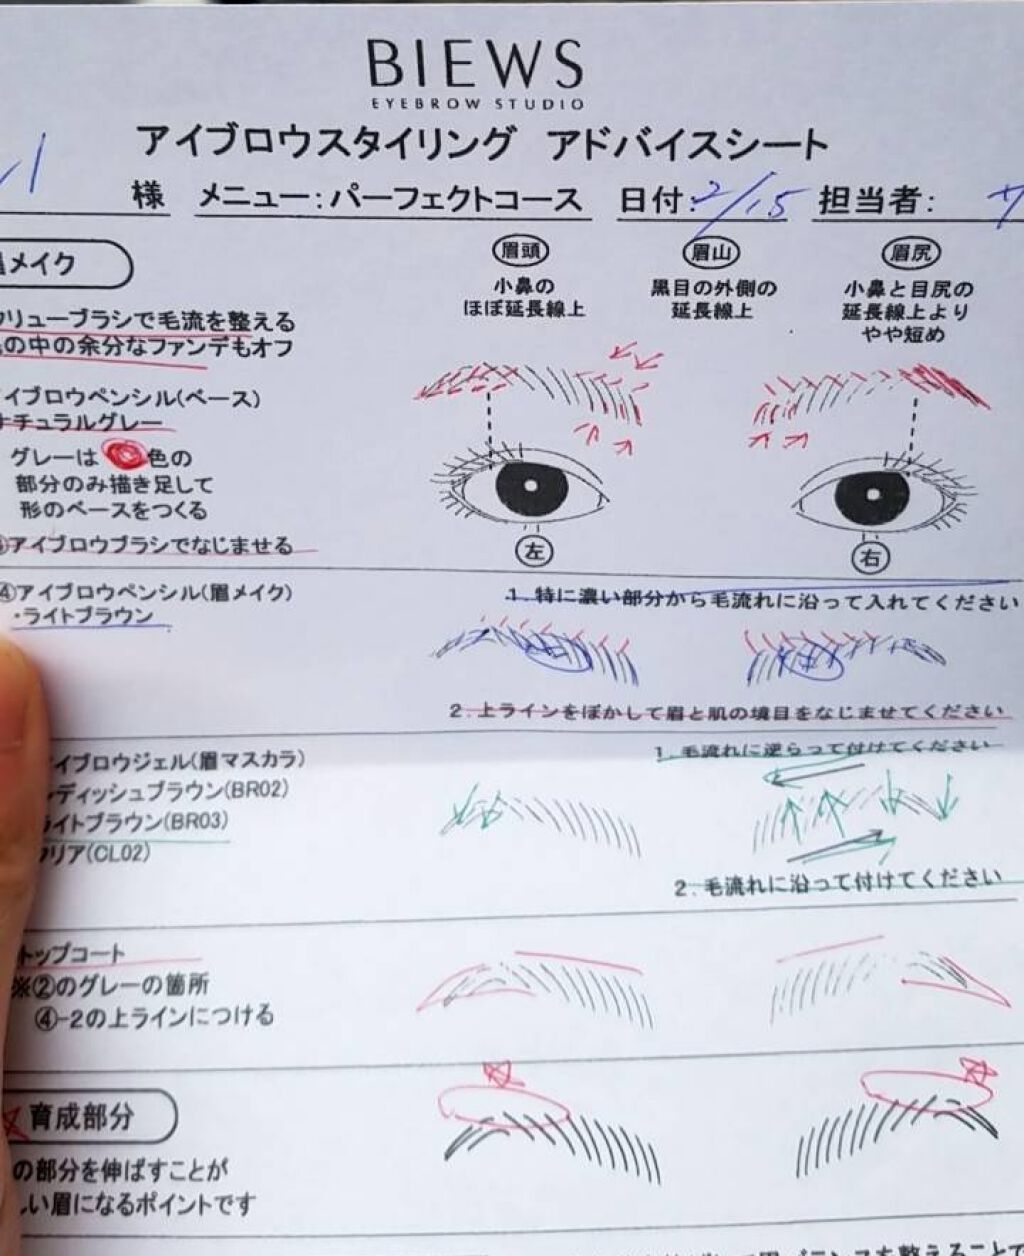 BIEWS
EYEBROW STUDIO
アイブロウスタイリング アドバイスシート
様 メニュー：パーフェクトコース 日付：2/15 担当者：
メイク
眉頭 眉山 眉尻
小鼻の
ほぼ延長線上
黒目の外側の
延長線上
小鼻と目尻の
延長線上より
やや短め
リューブラシで毛流を整える
の中の余分なファンデもオフ
イブロウペンシル(ベース)
ナチュラルグレー
グレーは 色の
部分のみ描き足して
形のベースをつくる
アイブロウブラシでなじませる
左 右
④アイブロウペンシル(眉メイク)
・ライトブラウン
1. 特に濃い部分から毛流れに沿って入れてください
2. 上ラインをぼかして眉と肌の境目をなじませてください
イブロウジェル(眉マスカラ)
ディッシュブラウン(BR02)
ライトブラウン(BR03)
クリア(CL02)
1. 毛流れに逆らって付けてください
2. 毛流れに沿って付けてください
トップコート
※②のグレーの箇所
④-2の上ラインにつける
育成部分
の部分を伸ばすことが
しい眉になるポイントです